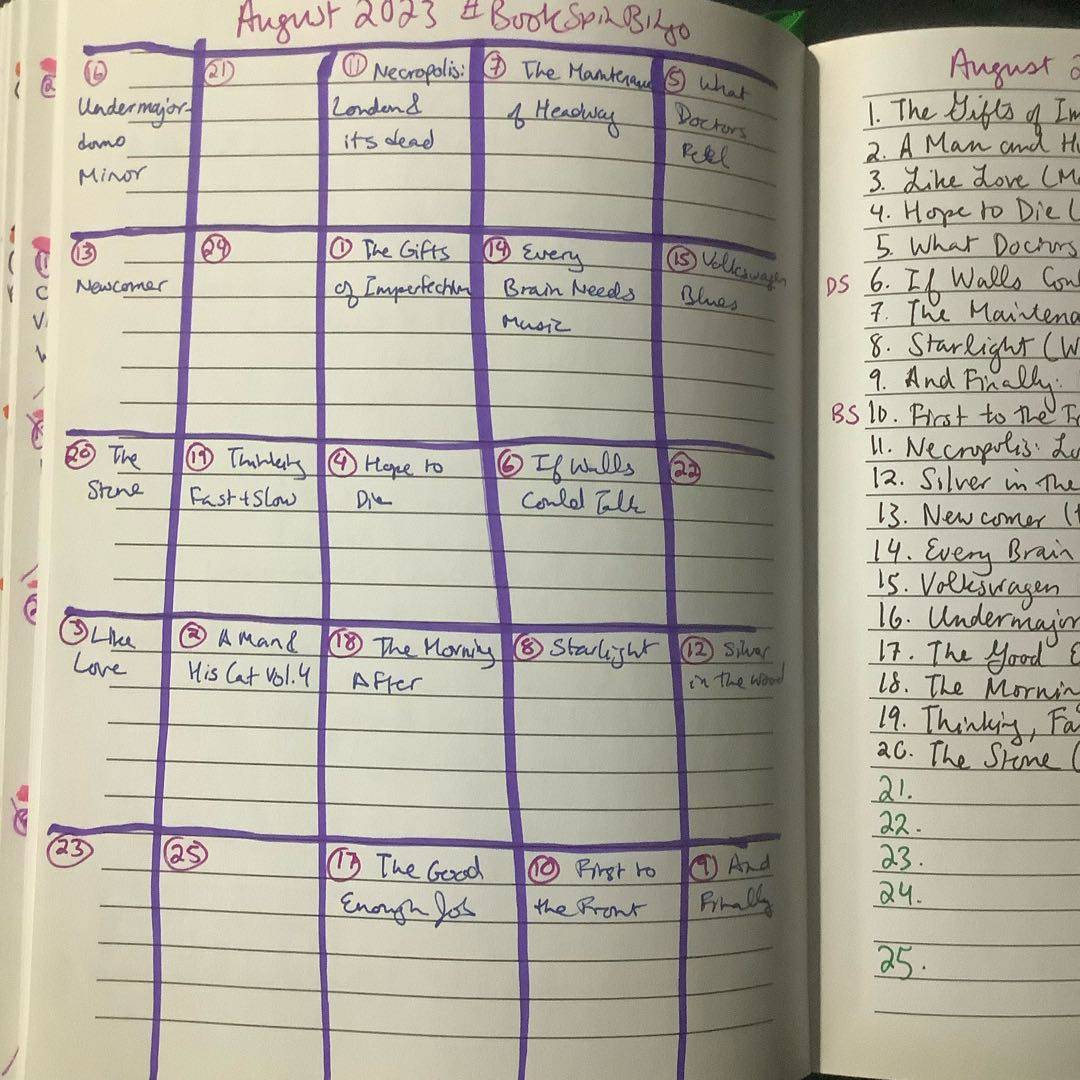 August 2023 #BookSpinBingo
16 Undermajor-
domo
Minor
21
11 Necropolis:
London &
its dead
7 The Maintenance
of Headway
5 What
Doctors
Feel
13
Newcomer
24
1 The Gifts
of Imperfection
14 Every
Brain Needs
Music
15 Volkswagen
Blues
20 The
Stone
19 Thinking
Fast + Slow
4 Hope to
Die
6 If Walls
Could Talk
22
3 Like
Love
2 A Man &
His Cat Vol. 4
18 The Morning
After
8 Starlight
12 Silver
in the wood
23
25
17 The Good
Enough Job
10 First to
the Front
9 And
Finally
August 2
1. The Gifts of Im
2. A Man and Hi
3. Like Love (Ma
4. Hope to Die (
5. What Doctors
DS 6. If Walls Coul
7. The Maintena
8. Starlight (W
9. And Finally:
BS 10. First to the Fr
11. Necropolis: Lo
12. Silver in the
13. Newcomer (
14. Every Brain
15. Volkswagen
16. Undermajor
17. The Good E
18. The Mornin
19. Thinking, Fa
20. The Stone (
21.
22.
23.
24.
25.